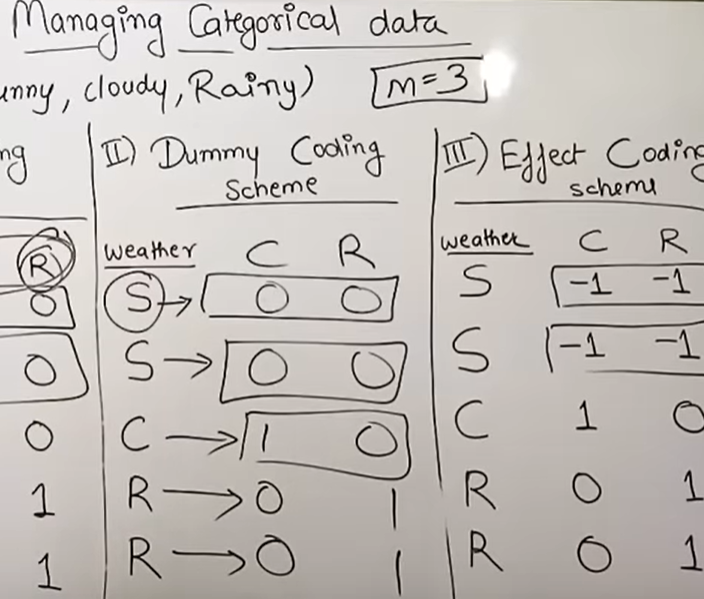 Managing Categorical data
unny, cloudy, Rainy) m=3
ng
R
0
0
0
1
1
II) Dummy Coding
Scheme
weather C R
S → 0 0
S → 0 0
C → 1 0
R → 0 1
R → 0 1
III) Effect Coding
scheme
weather C R
S -1 -1
S -1 -1
C 1 0
R 0 1
R 0 1